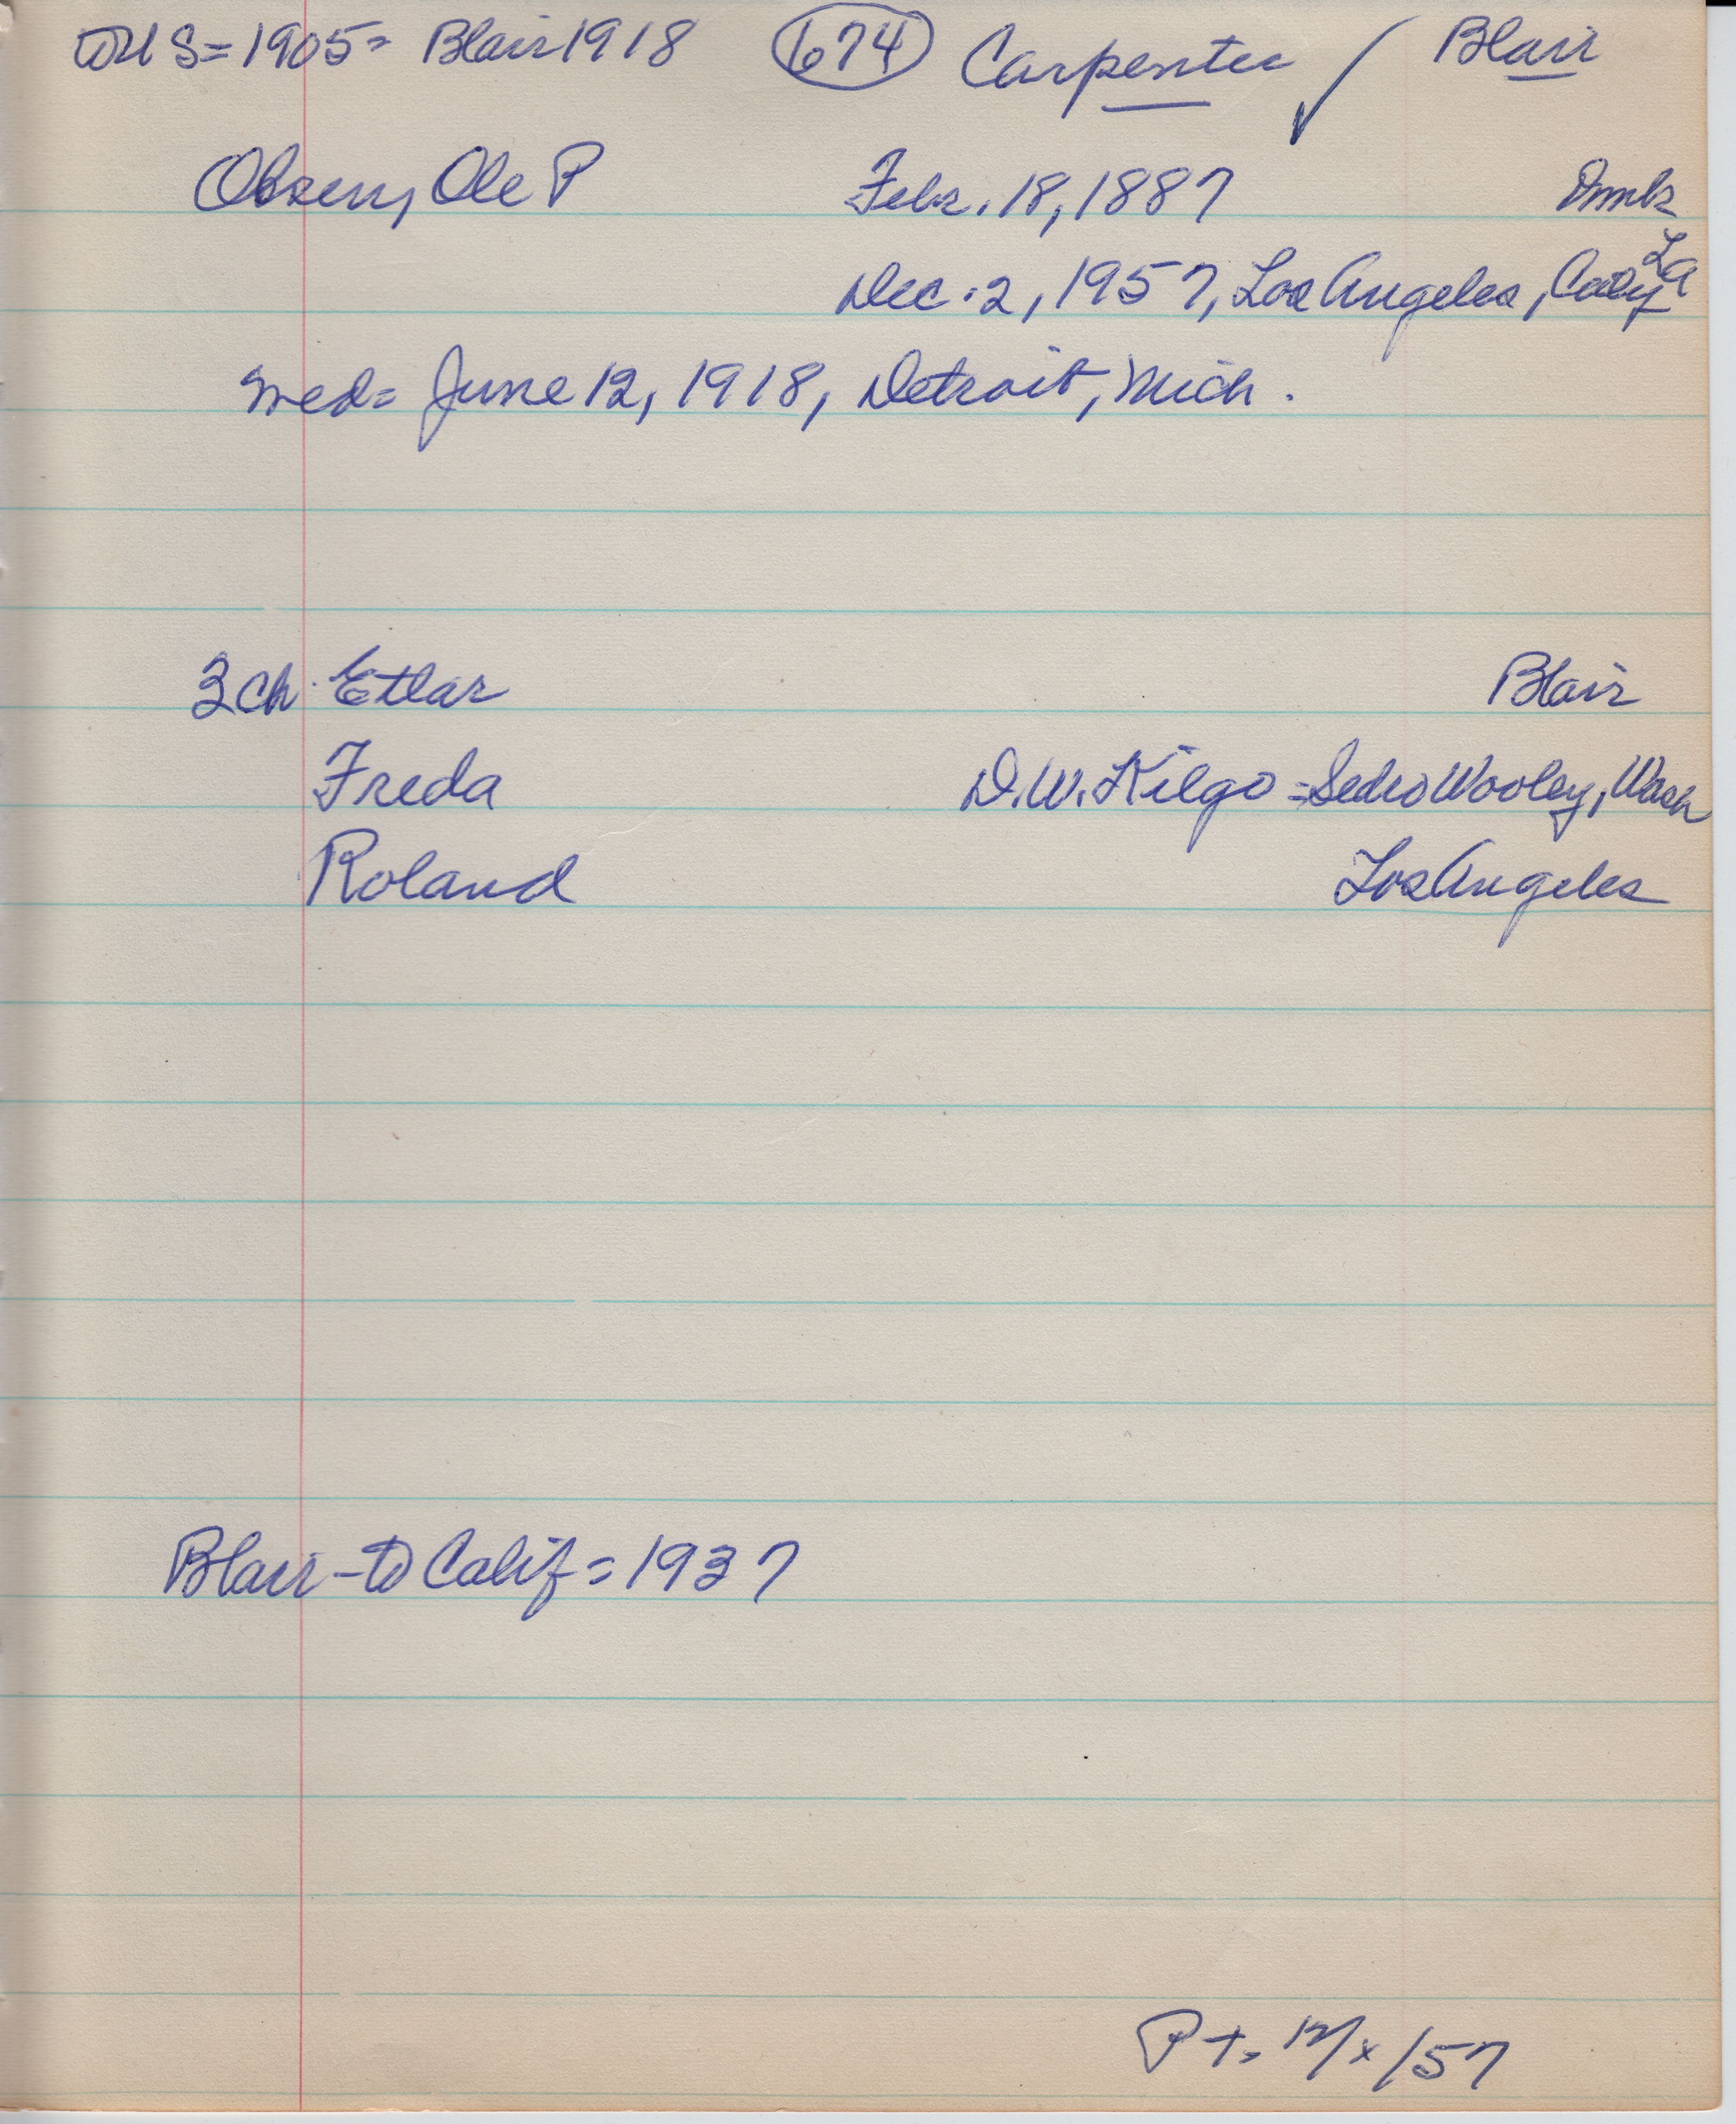 to U S = 1905 = Blair 1918 674 Carpenter ✓ Blair
Olsen, Ole P Febr. 18, 1887 Dmk
Dec. 2, 1957, Los Angeles, Calif
La
med = June 12, 1918, Detroit, Mich.
3 ch. Etlar Blair
Freda D.W. Kilgo = Sedro Wooley, Wash
Roland Los Angeles
Blair - to Calif = 1937
P T = 12/x/57